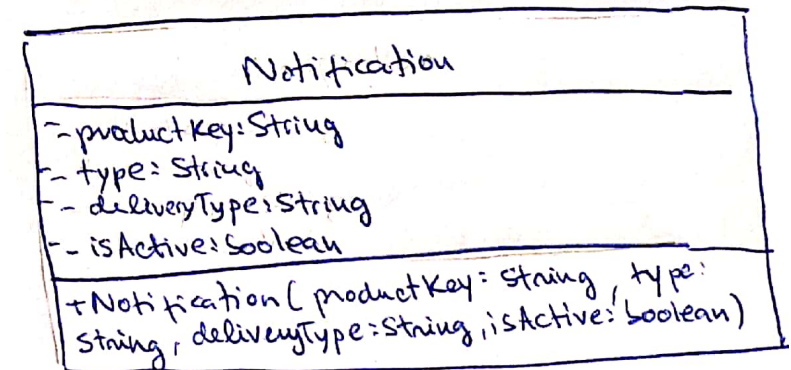 Notification
- productKey: String
- type: String
- deliveryType: String
- isActive: boolean
+ Notification( productKey: String, type:
String, deliveryType: String, isActive: boolean)